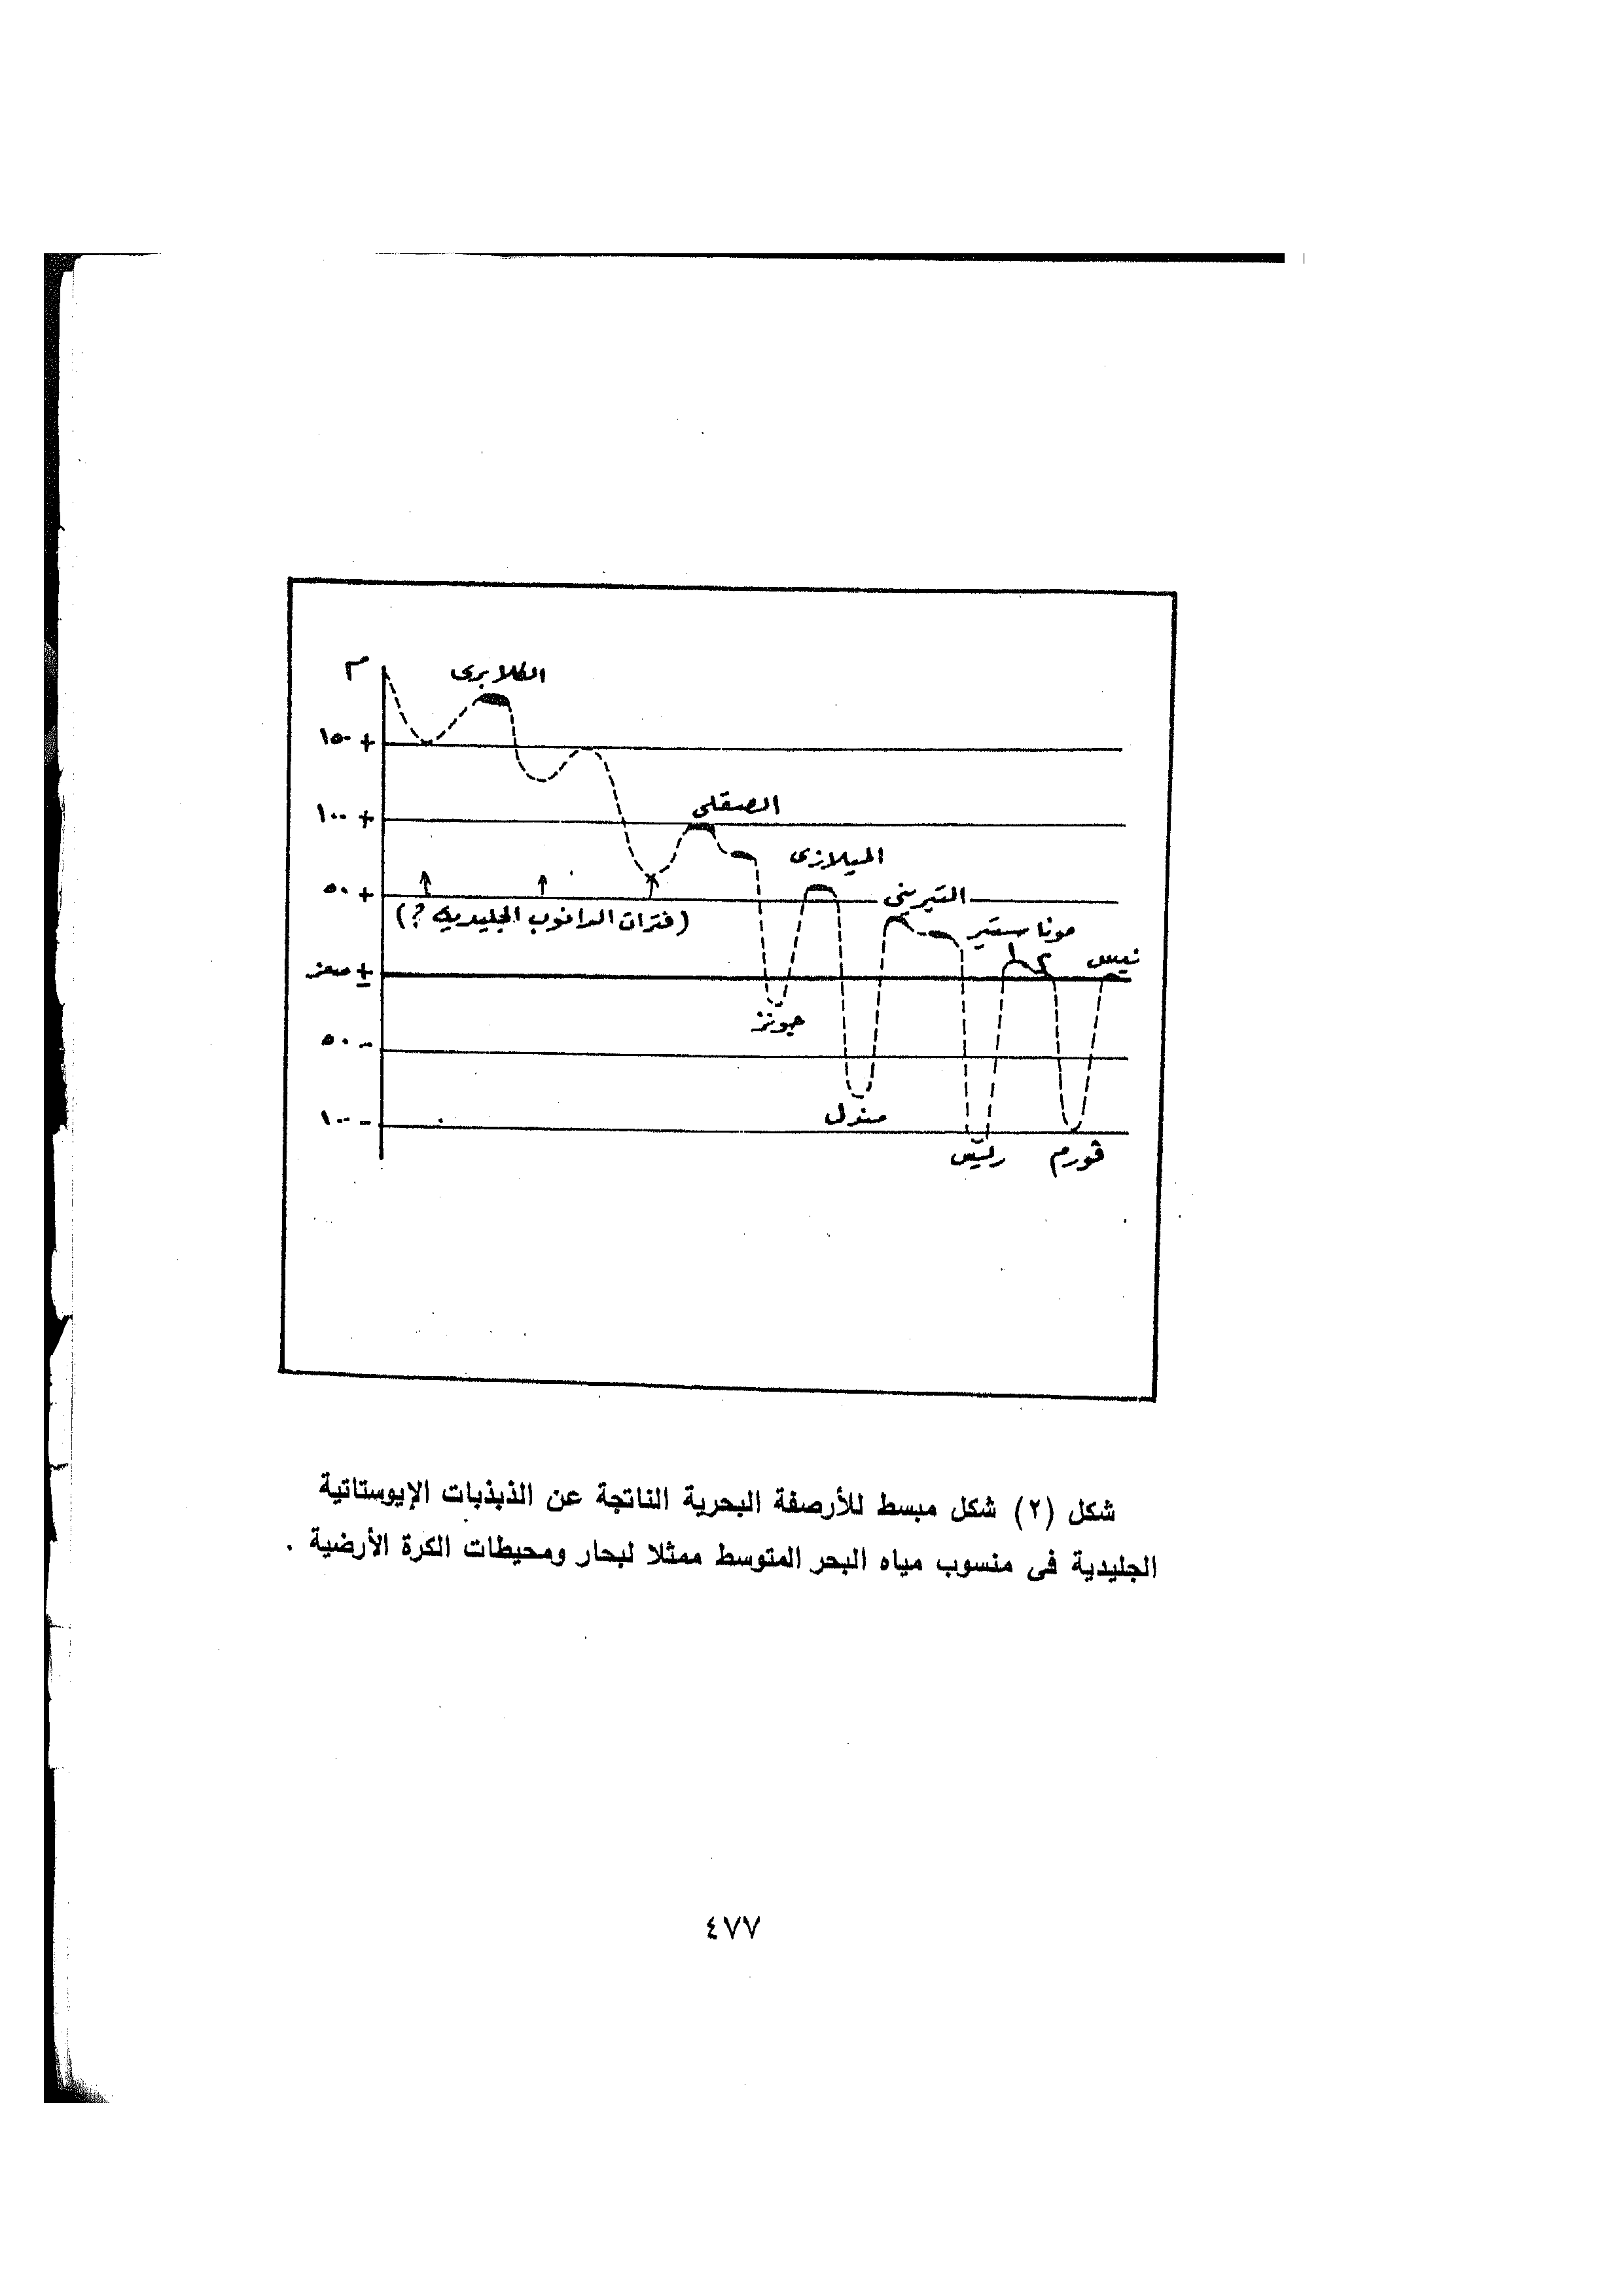 م
الكلابرى
+ ١٥٠
+ ١٠٠
الصقلى
الميلازى
+ ٥٠
التيرينى
(فترات الدانوب الجليدية ?)
موناستير
١
٢
نيس
± صفر
جونز
- ٥٠
مندل
- ١٠٠
ريس
فورم
شكل (٢) شكل مبسط للأرصفة البحرية الناتجة عن الذبذبات الإيوستاتية
الجليدية فى منسوب مياه البحر المتوسط ممثلا لبحار ومحيطات الكرة الأرضية .
٤٧٧